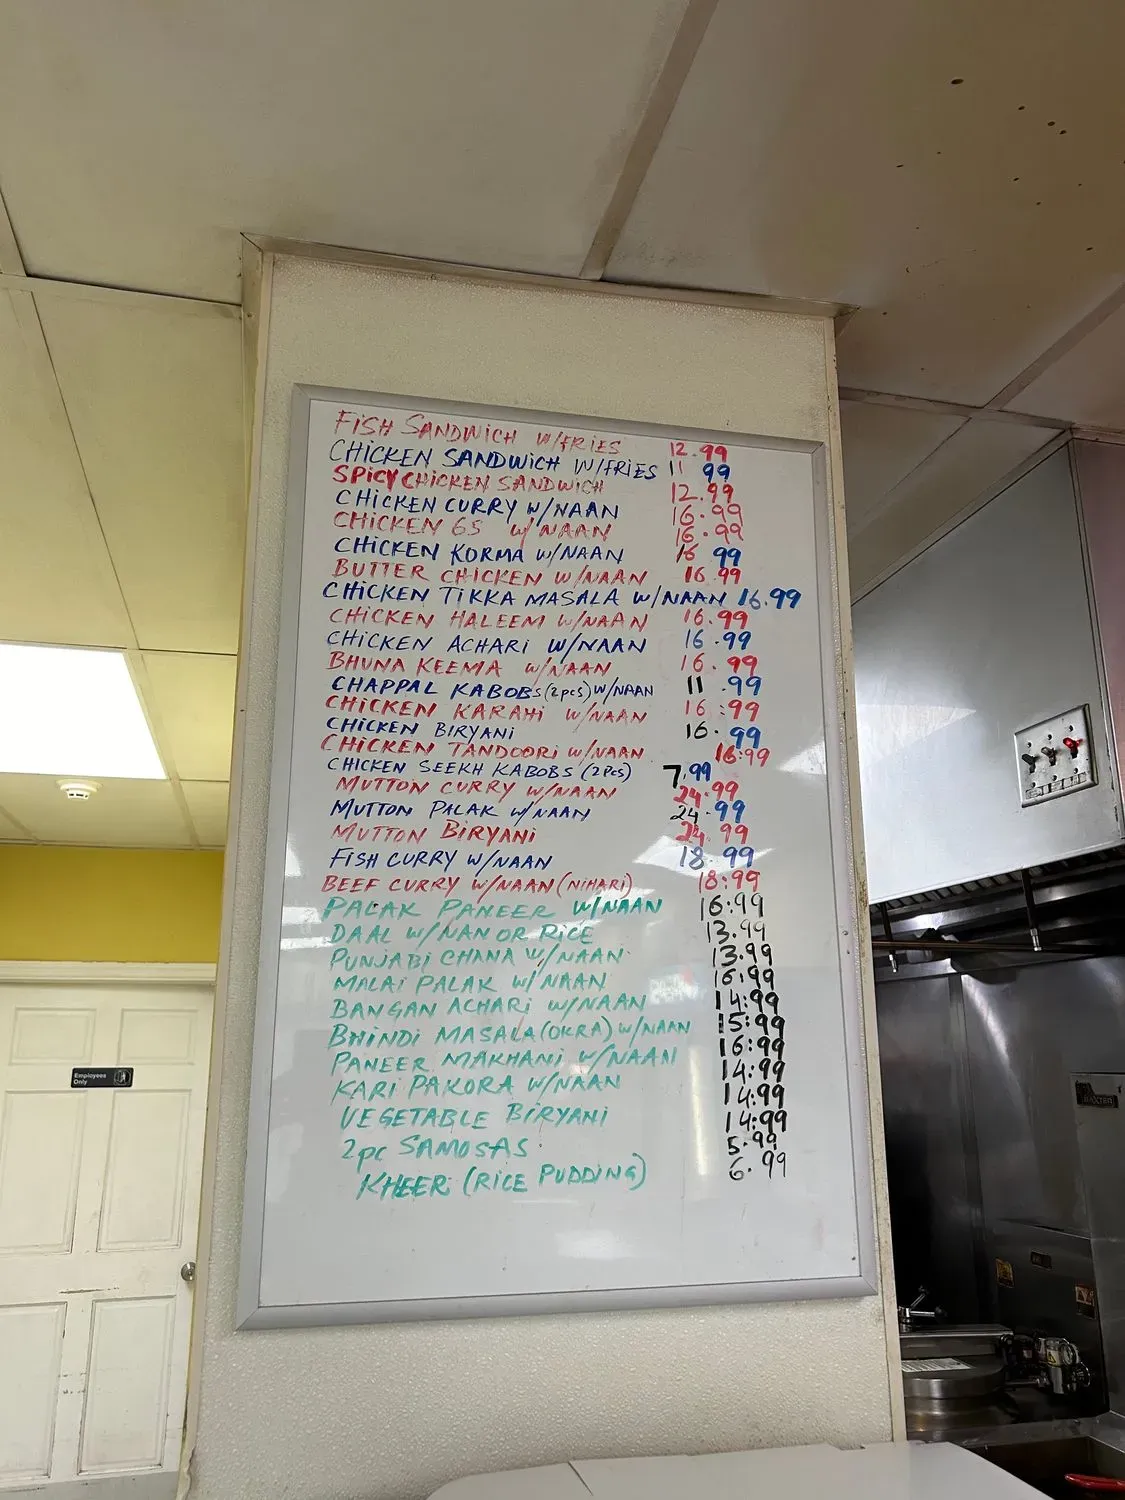 FISH SANDWICH W/FRIES 12.99
CHICKEN SANDWICH W/FRIES 11 99
SPICY CHICKEN SANDWICH 12.99
CHICKEN CURRY W/NAAN 16.99
CHICKEN 65 W/NAAN 16.99
CHICKEN KORMA W/NAAN 16 99
BUTTER CHICKEN W/NAAN 16.99
CHICKEN TIKKA MASALA W/NAAN 16.99
CHICKEN HALEEM W/NAAN 16.99
CHICKEN ACHARI W/NAAN 16.99
BHUNA KEEMA W/NAAN 16.99
CHAPPAL KABOBS (2pcs) W/NAAN 11.99
CHICKEN KARAHI W/NAAN 16:99
CHICKEN BIRYANI 16.99
CHICKEN TANDOORI W/NAAN 16:99
CHICKEN SEEKH KABOBS (2Pcs) 7.99
MUTTON CURRY W/NAAN 24.99
MUTTON PALAK W/NAAN 24.99
MUTTON BIRYANI 24.99
FISH CURRY W/NAAN 18.99
BEEF CURRY W/NAAN (NIHARI) 18:99
PALAK PANEER W/NAAN 16:99
DAAL W/NAN OR RICE 13.99
PUNJABI CHANA W/NAAN 13.99
MALAI PALAK W/NAAN 16.99
BANGAN ACHARI W/NAAN 14:99
BHINDI MASALA (OKRA) W/NAAN 15:99
PANEER MAKHANI W/NAAN 16:99
KARI PAKORA W/NAAN 14:99
VEGETABLE BIRYANI 14:99
14:99
2pc SAMOSAS 5.99
KHEER (RICE PUDDING) 6.99
Employees
Only